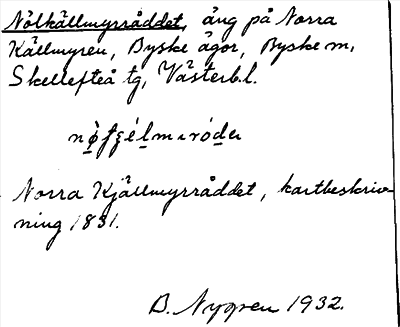 Nölkällmyrråddet, äng på Norra
Källmyren, Byske ägor, Byske m,
Skellefteå tg, Västerb.l.
Norra Kjällmyrråddet, kartbeskriv-
ning 1831.
B. Nygren 1932.